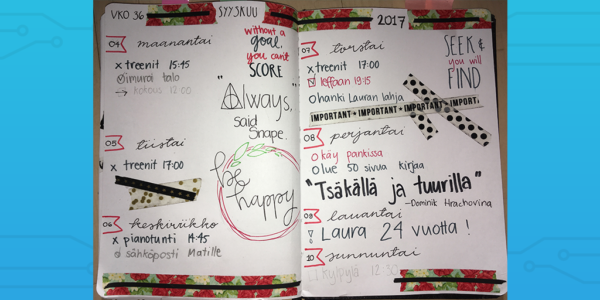 VKO 36
SYYSKUU
04 maanantai
x treenit 15:45
imuroi talo
→ kokous 12:00
without a
goal,
you can't
SCORE
"Always,"
said
Snape.
05 tiistai
x treenit 17:00
be
happy
06 keskiviikko
x pianotunti 14:45
sähköposti Matille
2017
07 torstai
x treenit 17:00
leffaan 19:15
hanki Lauran lahja
SEEK &
you will
FIND
IMPORTANT ★ IMPORTANT ★ IMPORTANT IMPORT
08 perjantai
käy pankissa
lue 50 sivua kirjaa
"Tsäkällä ja tuurilla"
–Dominik Hrachovina
09 lauantai
! Laura 24 vuotta !
10 sunnuntai
kylpylä 12:30